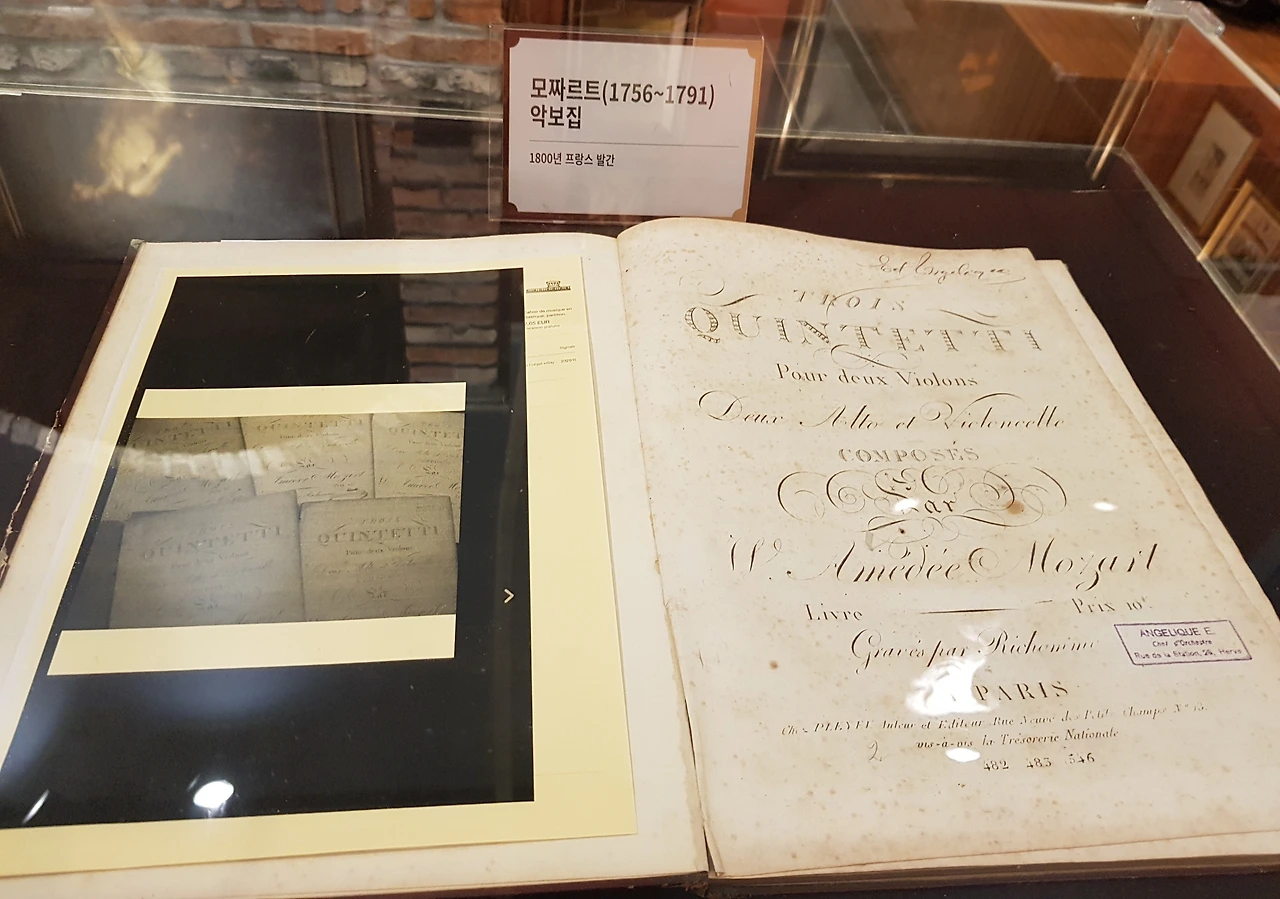 모짜르트(1756~1791)
악보집
1800년 프랑스 발간
EUR
QUINTETTI
QUINTETTI
Pour deux Violons
TROIS
QUINTETTI
Pour deux Violons
Deux Alto et Violoncelle
COMPOSÉS
Par
W. Amédée Mozart
Livre Prix 10
Gravés par Richomme
PARIS
Chez PLEYEL Auteur et Editeur Rue Neuve des Petits Champs N° 13.
vis-à-vis la Trésorerie Nationale
2
482 483 546
ANGELIQUE E.
Chef d'Orchestre
Rue de la Station, 29, Herve